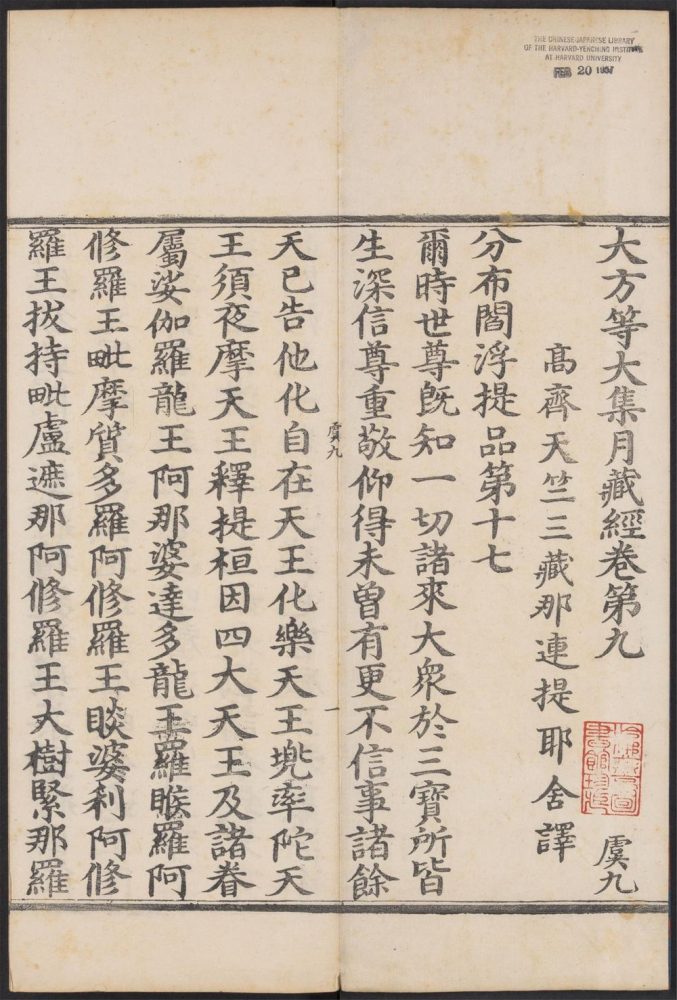 THE CHINESE-JAPANESE LIBRARY
OF THE HARVARD-YENCHING INSTITUTE
AT HARVARD UNIVERSITY
FEB 20 1957
大方等大集月藏經卷第九
虞九
高齊天竺三藏那連提耶舍譯
分布閻浮提品第十七
爾時世尊旣知一切諸來大衆於三寶所皆
生深信尊重敬仰得未曾有更不信事諸餘
虞九
一
天已告他化自在天王化樂天王兠率陀天
王須夜摩天王釋提桓因四大天王及諸眷
屬娑伽羅龍王阿那婆達多龍王羅睺羅阿
修羅王毗摩質多羅阿修羅王睒婆利阿修
羅王拔持毗盧遮那阿修羅王大樹緊那羅